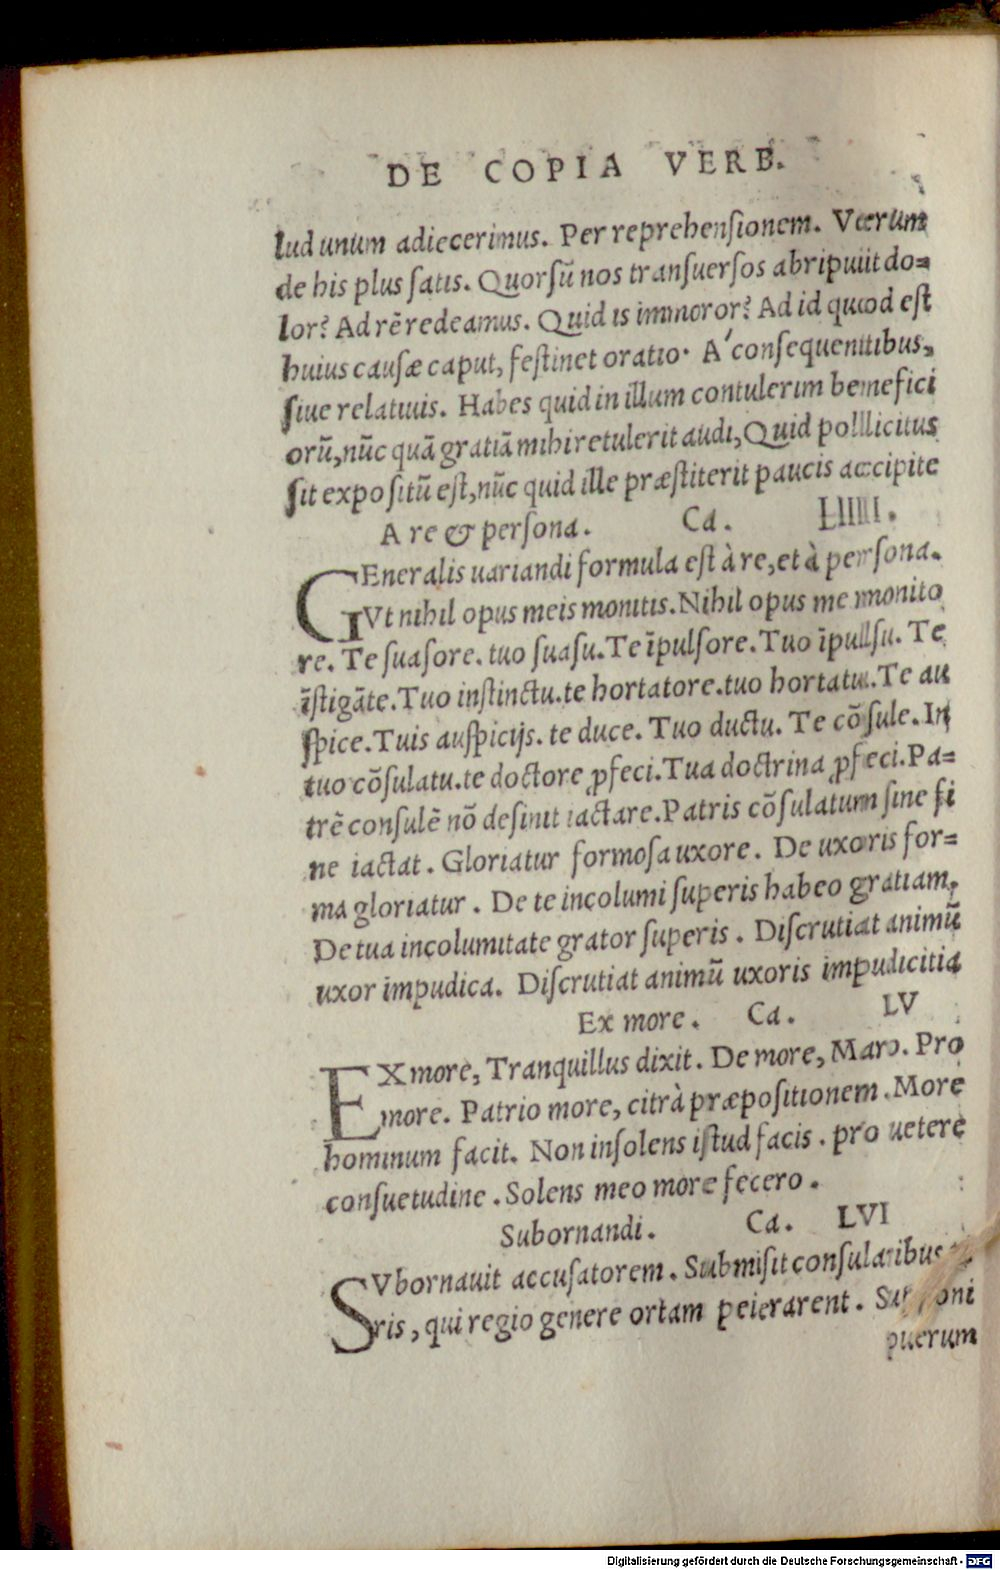 DE COPIA VERB.
lud unum adiecerimus. Per reprehensionem. Verum
de his plus satis. Quorsũ nos transuersos abripuit do=
lor? Ad rẽ redeamus. Quid is immoror? Ad id quod est
huius causæ caput, festinet oratio. A' consequentibus,
siue relatiuis. Habes quid in illum contulerim benefici
orũ, nũc quã gratiã mihi retulerit audi, Quid pollicitus
sit expositũ est, nũc quid ille præstiterit paucis accipite
A re & persona. Ca. LIIII.
GEneralis uariandi formula est à re, et à persona.
Vt nihil opus meis monitis. Nihil opus me monito
re. Te suasore. tuo suasu. Te ĩpulsore. Tuo ĩpulsu. Te
ĩstigãte. Tuo instinctu. te hortatore. tuo hortatu. Te au
spice. Tuis auspicijs. te duce. Tuo ductu. Te cõsule. In
tuo cõsulatu. te doctore ꝓfeci. Tua doctrina ꝓfeci. Pa=
trẽ consulẽ nõ desinit iactare. Patris cõsulatum sine fi
ne iactat. Gloriatur formosa uxore. De uxoris for=
ma gloriatur. De te incolumi superis habeo gratiam.
De tua incolumitate grator superis. Discrutiat animũ
uxor impudica. Discrutiat animũ uxoris impudicitia
Ex more. Ca. LV
EX more, Tranquillus dixit. De more, Maro. Pro
more. Patrio more, citrà præpositionem. More
hominum facit. Non insolens istud facis. pro uetere
consuetudine. Solens meo more fecero.
Subornandi. Ca. LVI
SVbornauit accusatorem. Submisit consularibus
ris, qui regio genere ortam peierarent.
puerum
Digitalisierung gefördert durch die Deutsche Forschungsgemeinschaft - DFG